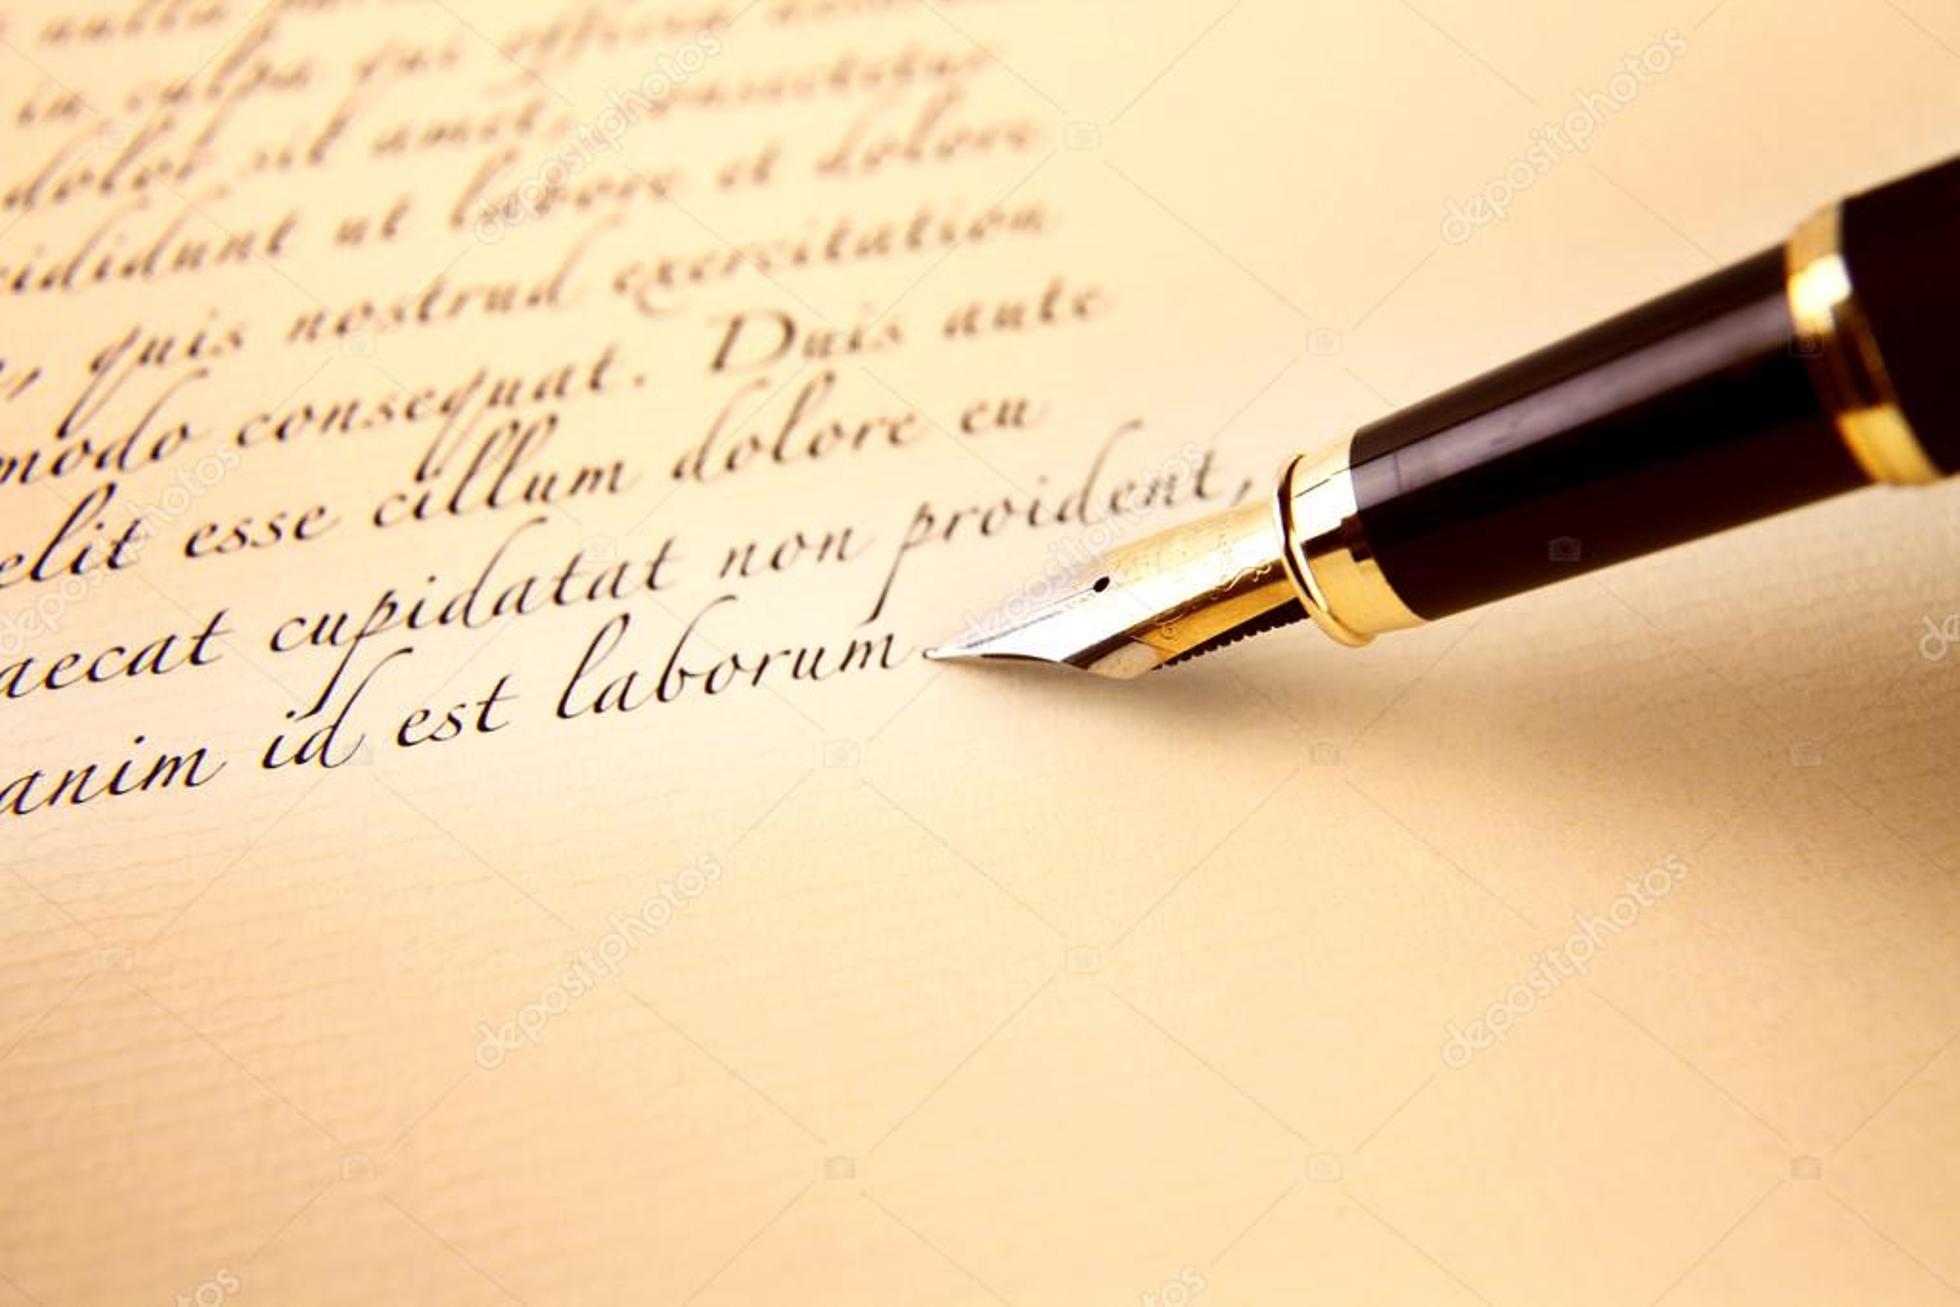 nulla
in culpa qui officia
dolor sit amet, consectetur
cididunt ut labore et dolore
, quis nostrud exercitation
modo consequat. Duis aute
elit esse cillum dolore eu
aecat cupidatat non proident,
anim id est laborum
depositphotos
depositphotos
depositphotos
depositphotos
depositphotos
depositphotos